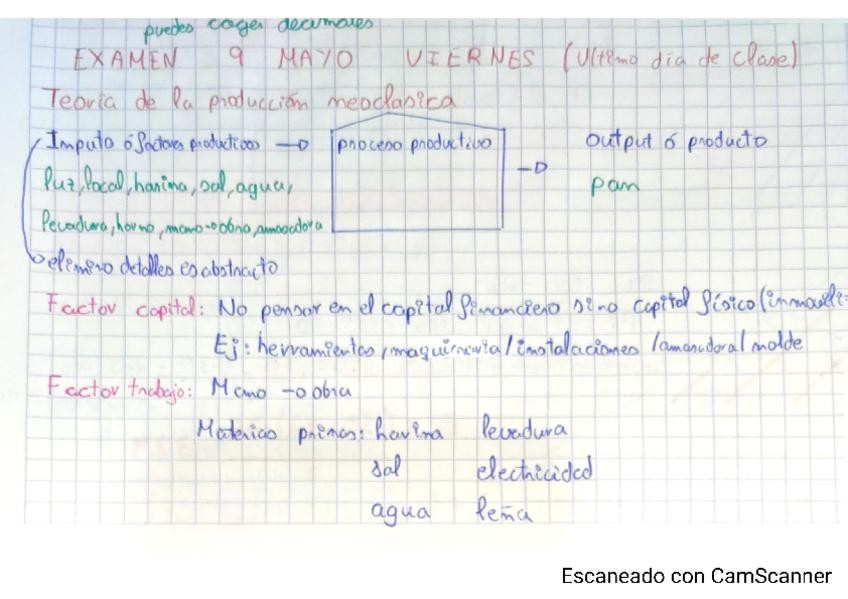 puedes coger decimales
EXAMEN 9 MAYO VIERNES (Ultimo día de clase)
Teoría de la producción neoclasica
Imputo ó factores productivos → proceso productivo → output ó producto
luz, local, harina, sal, agua, pan
levadura, horno, mano → obra, amasadora
elimino detalles es abstracto
Factor capital: No pensar en el capital financiero sino capital físico (inmovili-
Ej: herramientas, maquinaria / instalaciones / amasadora / molde
Factor trabajo: Mano → obra
Materias primas: harina levadura
sal electricidad
agua leña
Escaneado con CamScanner